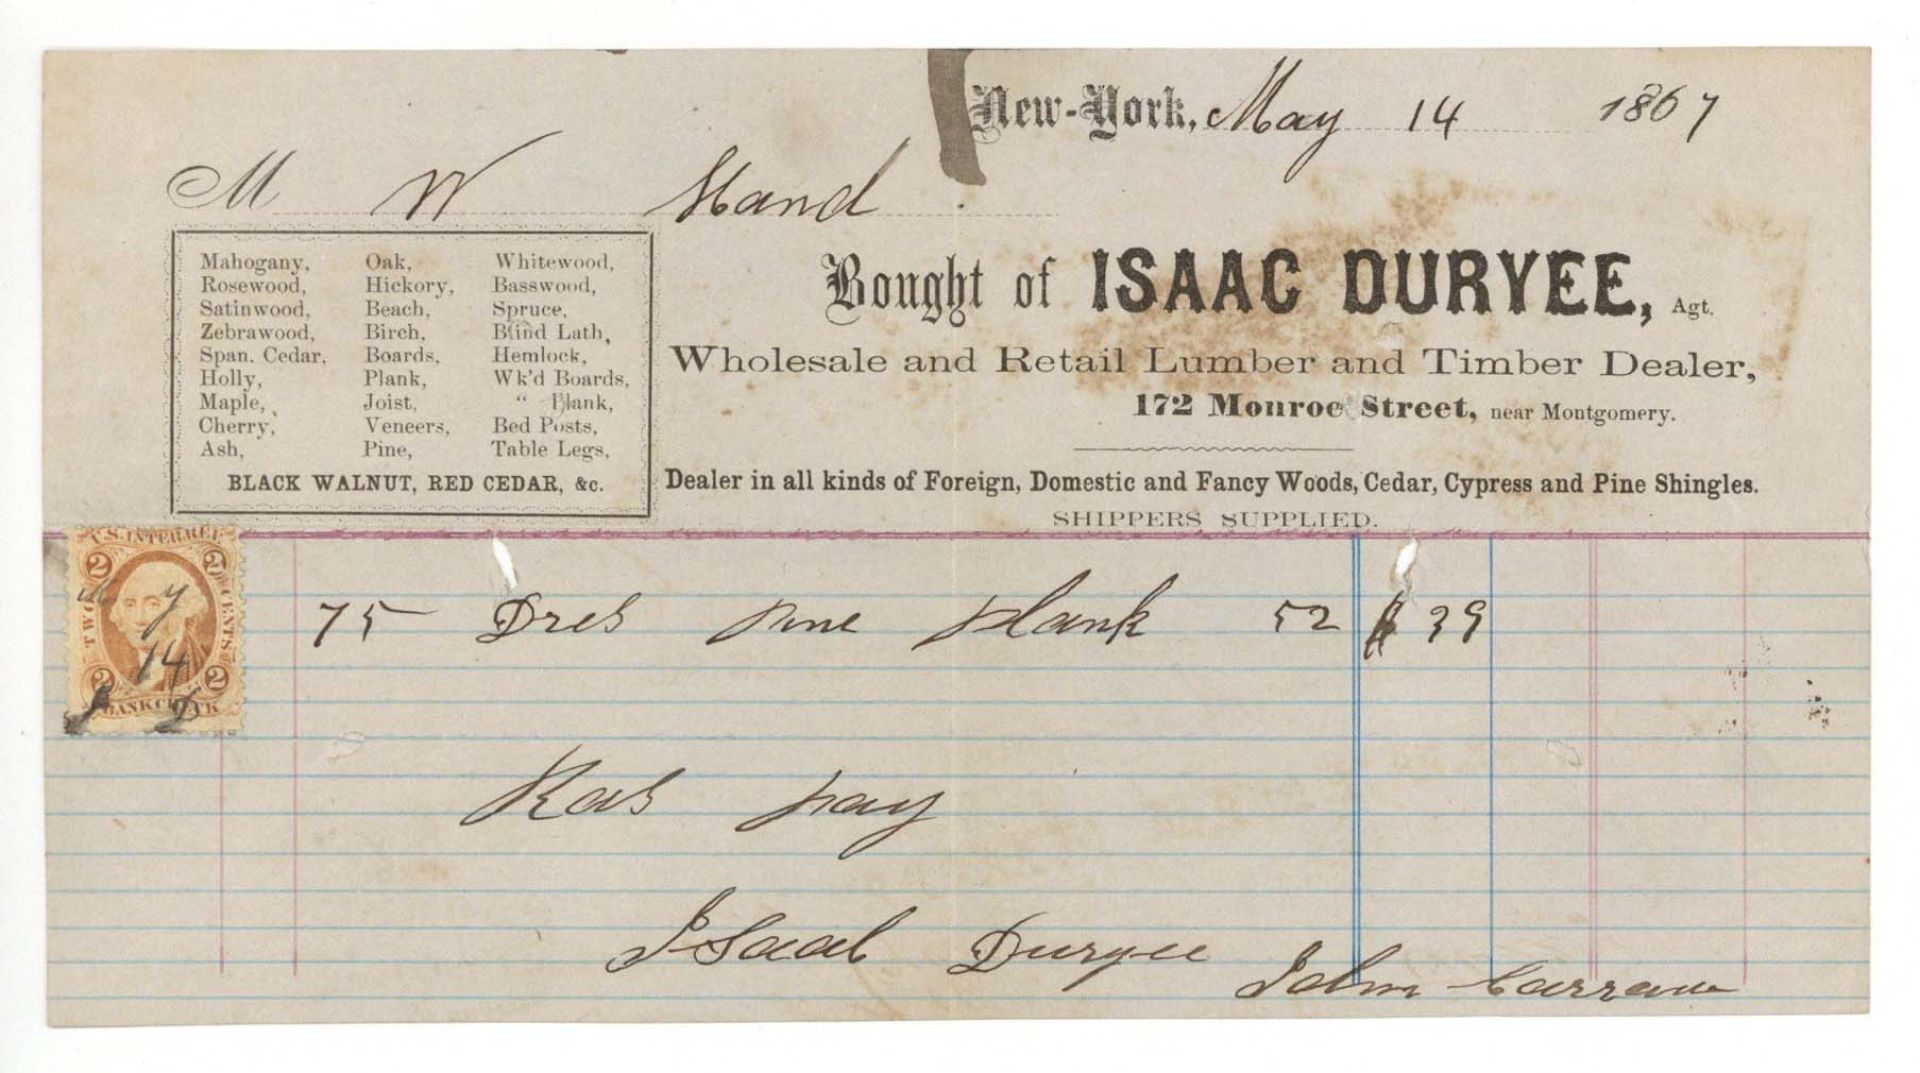 New-York, May 14 1867
M W Hand
Mahogany, Oak, Whitewood,
Rosewood, Hickory, Basswood,
Satinwood, Beach, Spruce,
Zebrawood, Birch, Blind Lath,
Span. Cedar, Boards, Hemlock,
Holly, Plank, Wk'd Boards,
Maple, Joist, " Plank,
Cherry, Veneers, Bed Posts,
Ash, Pine, Table Legs,
BLACK WALNUT, RED CEDAR, &c.
Bought of ISAAC DURYEE, Agt.
Wholesale and Retail Lumber and Timber Dealer,
172 Monroe Street, near Montgomery.
Dealer in all kinds of Foreign, Domestic and Fancy Woods, Cedar, Cypress and Pine Shingles.
SHIPPERS SUPPLIED.
U.S. INTER. REV.
2 2
TWO CENTS
My
14
2 2
BANK CHECK
I D
75 Dres pine plank 52 $ 39
pay
Isaac Duryee
John